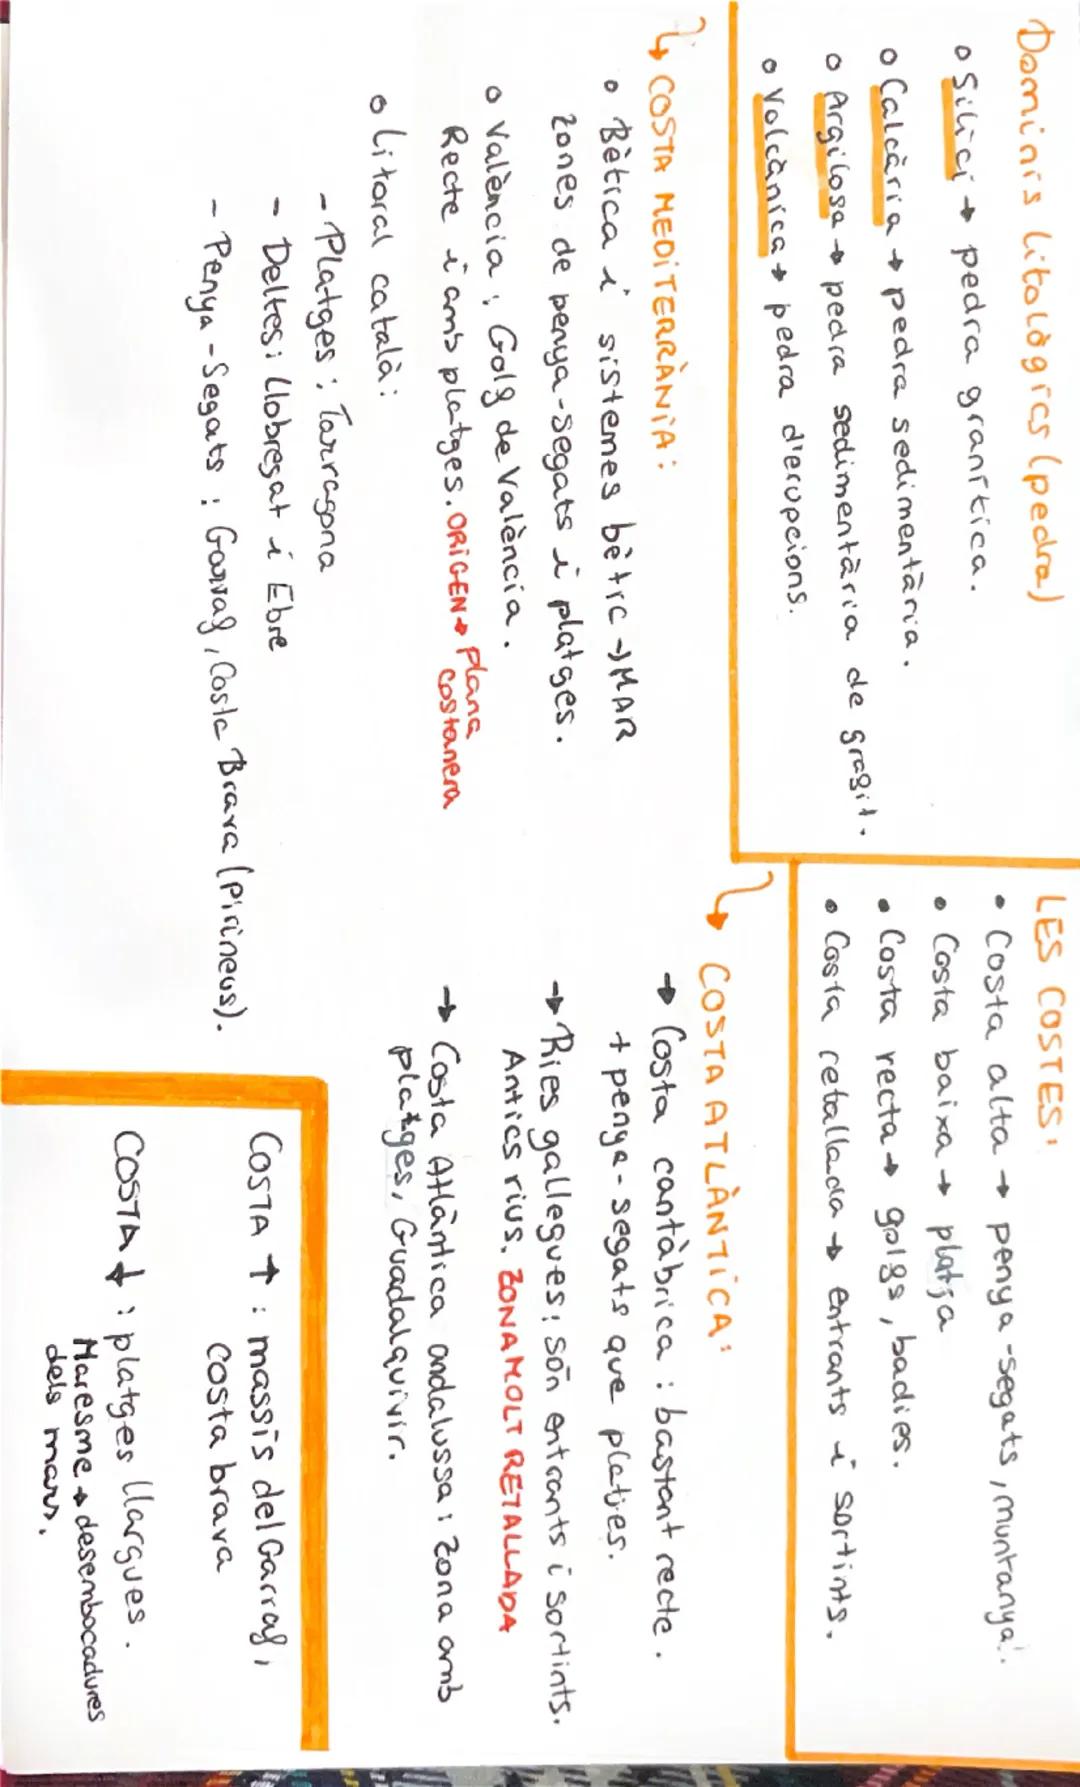 Dominis litològics (pedra)
o Silici → pedra granítica.
o Calcària → pedra sedimentària.
o Argilosa → pedra sedimentària de gragit.
o Volcànica → pedra d'erupcions.
LES COSTES:
• Costa alta → penya-segats, muntanya.
• Costa baixa → platja
• Costa recta → golgs, badies.
• Costa retallada → entrants i sortints.
↳ COSTA MEDITERRÀNIA:
• Bètica i sistemes bètic → MAR
zones de penya-segats i platges.
o València: Golg de València.
Recte i amb platges. ORIGEN → Plana
costanera
o Litoral català:
- Platges: Tarragona
- Deltes: Llobregat i Ebre
- Penya-Segats: Garraf, Costa Brava (Pirineus).
↳ COSTA ATLÀNTICA:
→ Costa cantàbrica: bastant recte.
+ penya-segats que platjes.
→ Ries gallegues: són entrants i sortints.
Antics rius. ZONA MOLT RETALLADA
→ Costa Atlàntica andalussa: zona amb
platges, Guadalquivir.
COSTA ↑: massís del Garraf,
costa brava
COSTA ↓: platges llargues.
Maresme → desembocadures
dels mars.